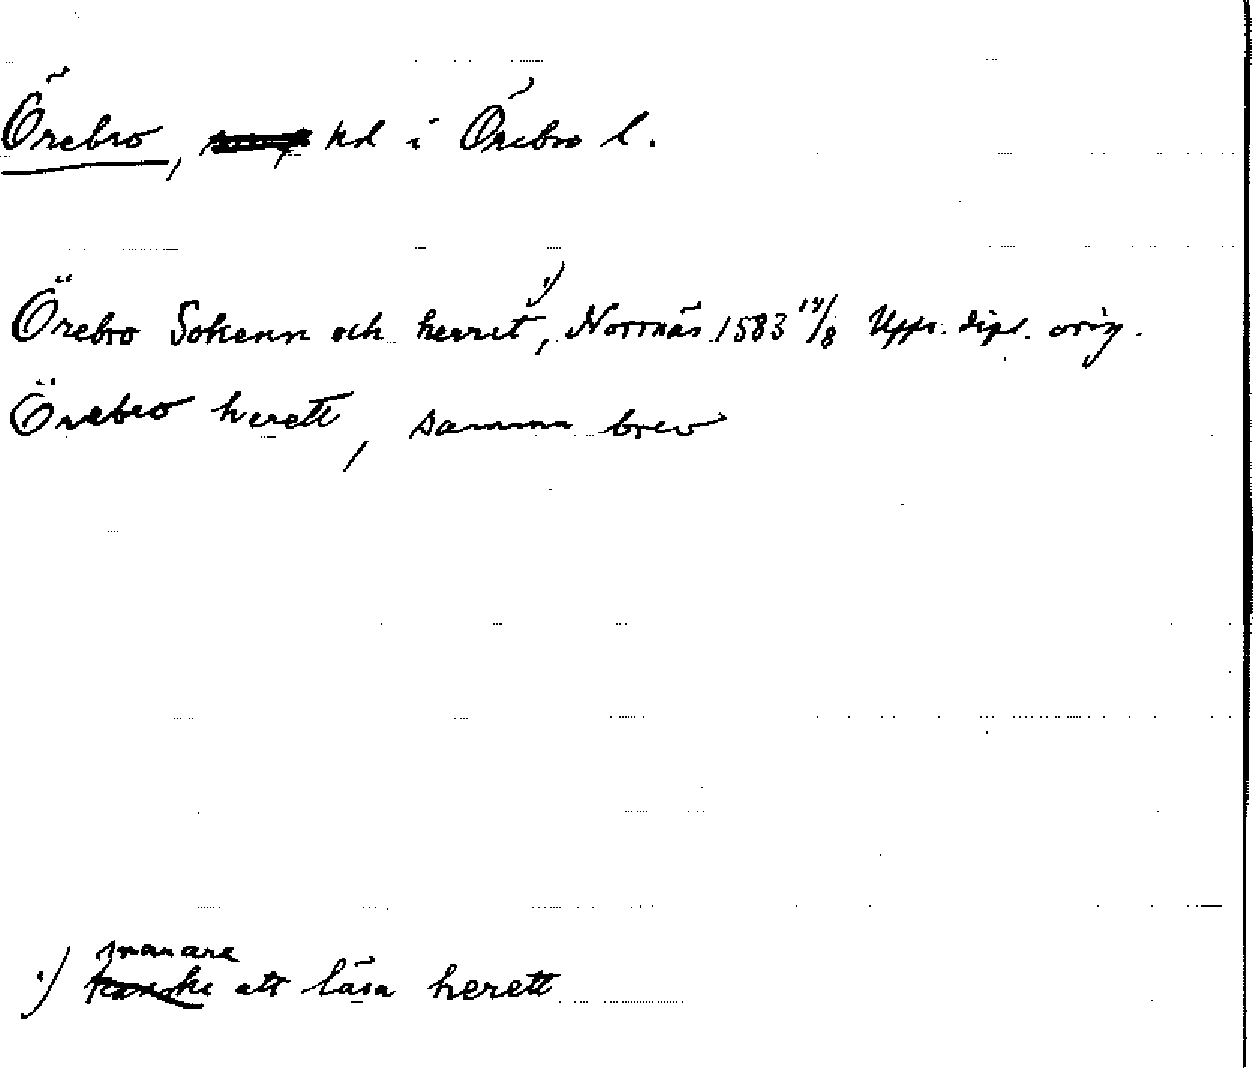 Örebro, hd i Örebro l.
Örebro Sokenn och herret¹⁾, Norrnäs 1583 ¹⁹/₈ Upps. dipl. orig.
Örebro herett, samma brev
¹⁾ snarare kanske att läsa herett